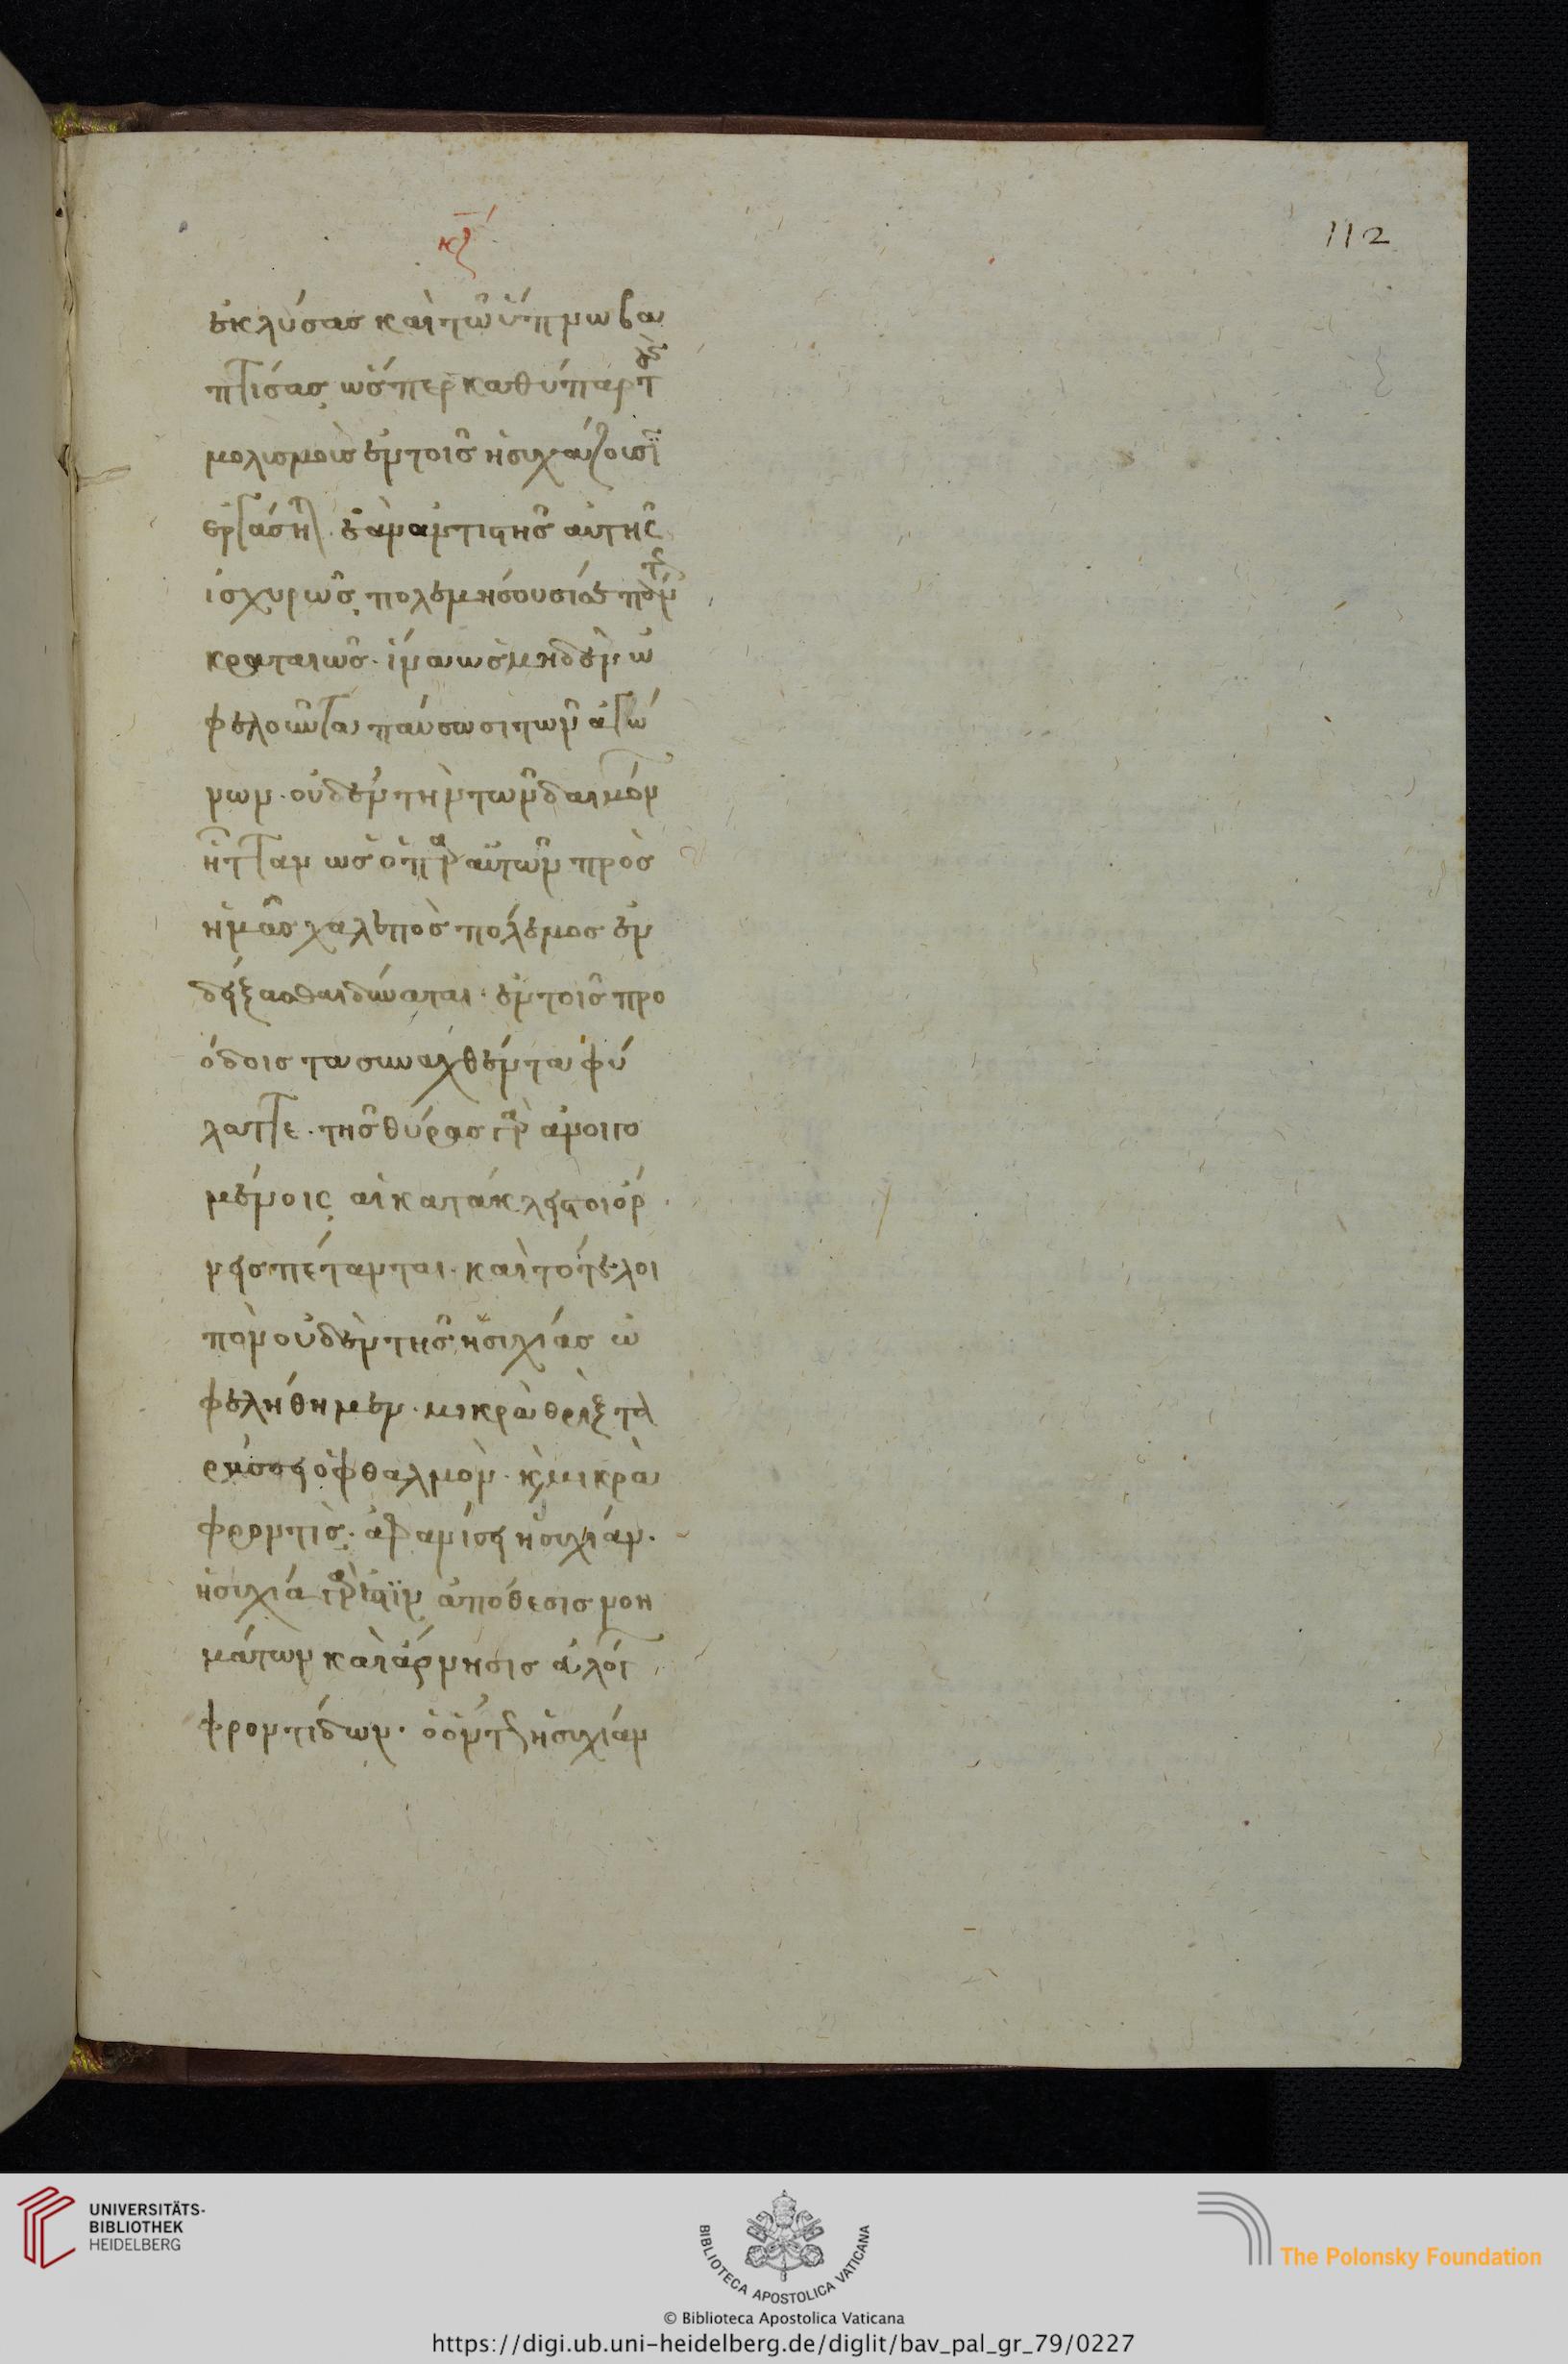 κζ
112
ἐκλύσας καὶ τῶ ὕπνω βα
πτίσας, ὥσπερ καθύπαρ τοὺς
μολισμοὺς ἐν τοῖς ἡσυχάζουσϊ
ἐργάσηται. ἐὰν ἀντιστῆς αὐτῆς
ἰσχυρῶς, πολεμήσουσί σε
κραταιῶς. ἵνα ὡς μηδὲν ὠ
φελοῦντα παύσωσι τῶν ἀγώ
νων. οὐδὲν τὴν τῶν δαιμόνων
ἧτταν ὡς ὁ παρ αὐτῶν πρὸς
ἡμᾶς χαλεπὸς πόλεμος ἐν
δείξασθαι δύναται. ἐν τοῖς προ
όδοις τα συναχθέντα φύ
λαττε. τῆς θύρας γὰρ ἀνοιγο
μένοις, αἱ κατάκλειστοι ὄρ
νεις πέτανται. καὶ τότε λοι
πὸν οὐδὲν τῆς ἡσυχίας ὠ
φελήθημεν. μικρὰ θρὶξ τα
ράσσει ὀφθαλμὸν. κ̀ μικρὰ
φροντὶς. ἀφανίσει ἡσυχίαν.
ἡσυχία γὰρ ἐστϊν ἀπόθεσις νοη
μάτων καὶ ἄρνησις εὐλόγων
φροντίδων. ὁ ὄντως ἡσυχίαν
UNIVERSITÄTS-
BIBLIOTHEK
HEIDELBERG
BIBLIOTECA APOSTOLICA VATICANA
The Polonsky Foundation
© Biblioteca Apostolica Vaticana
https://digi.ub.uni-heidelberg.de/diglit/bav_pal_gr_79/0227